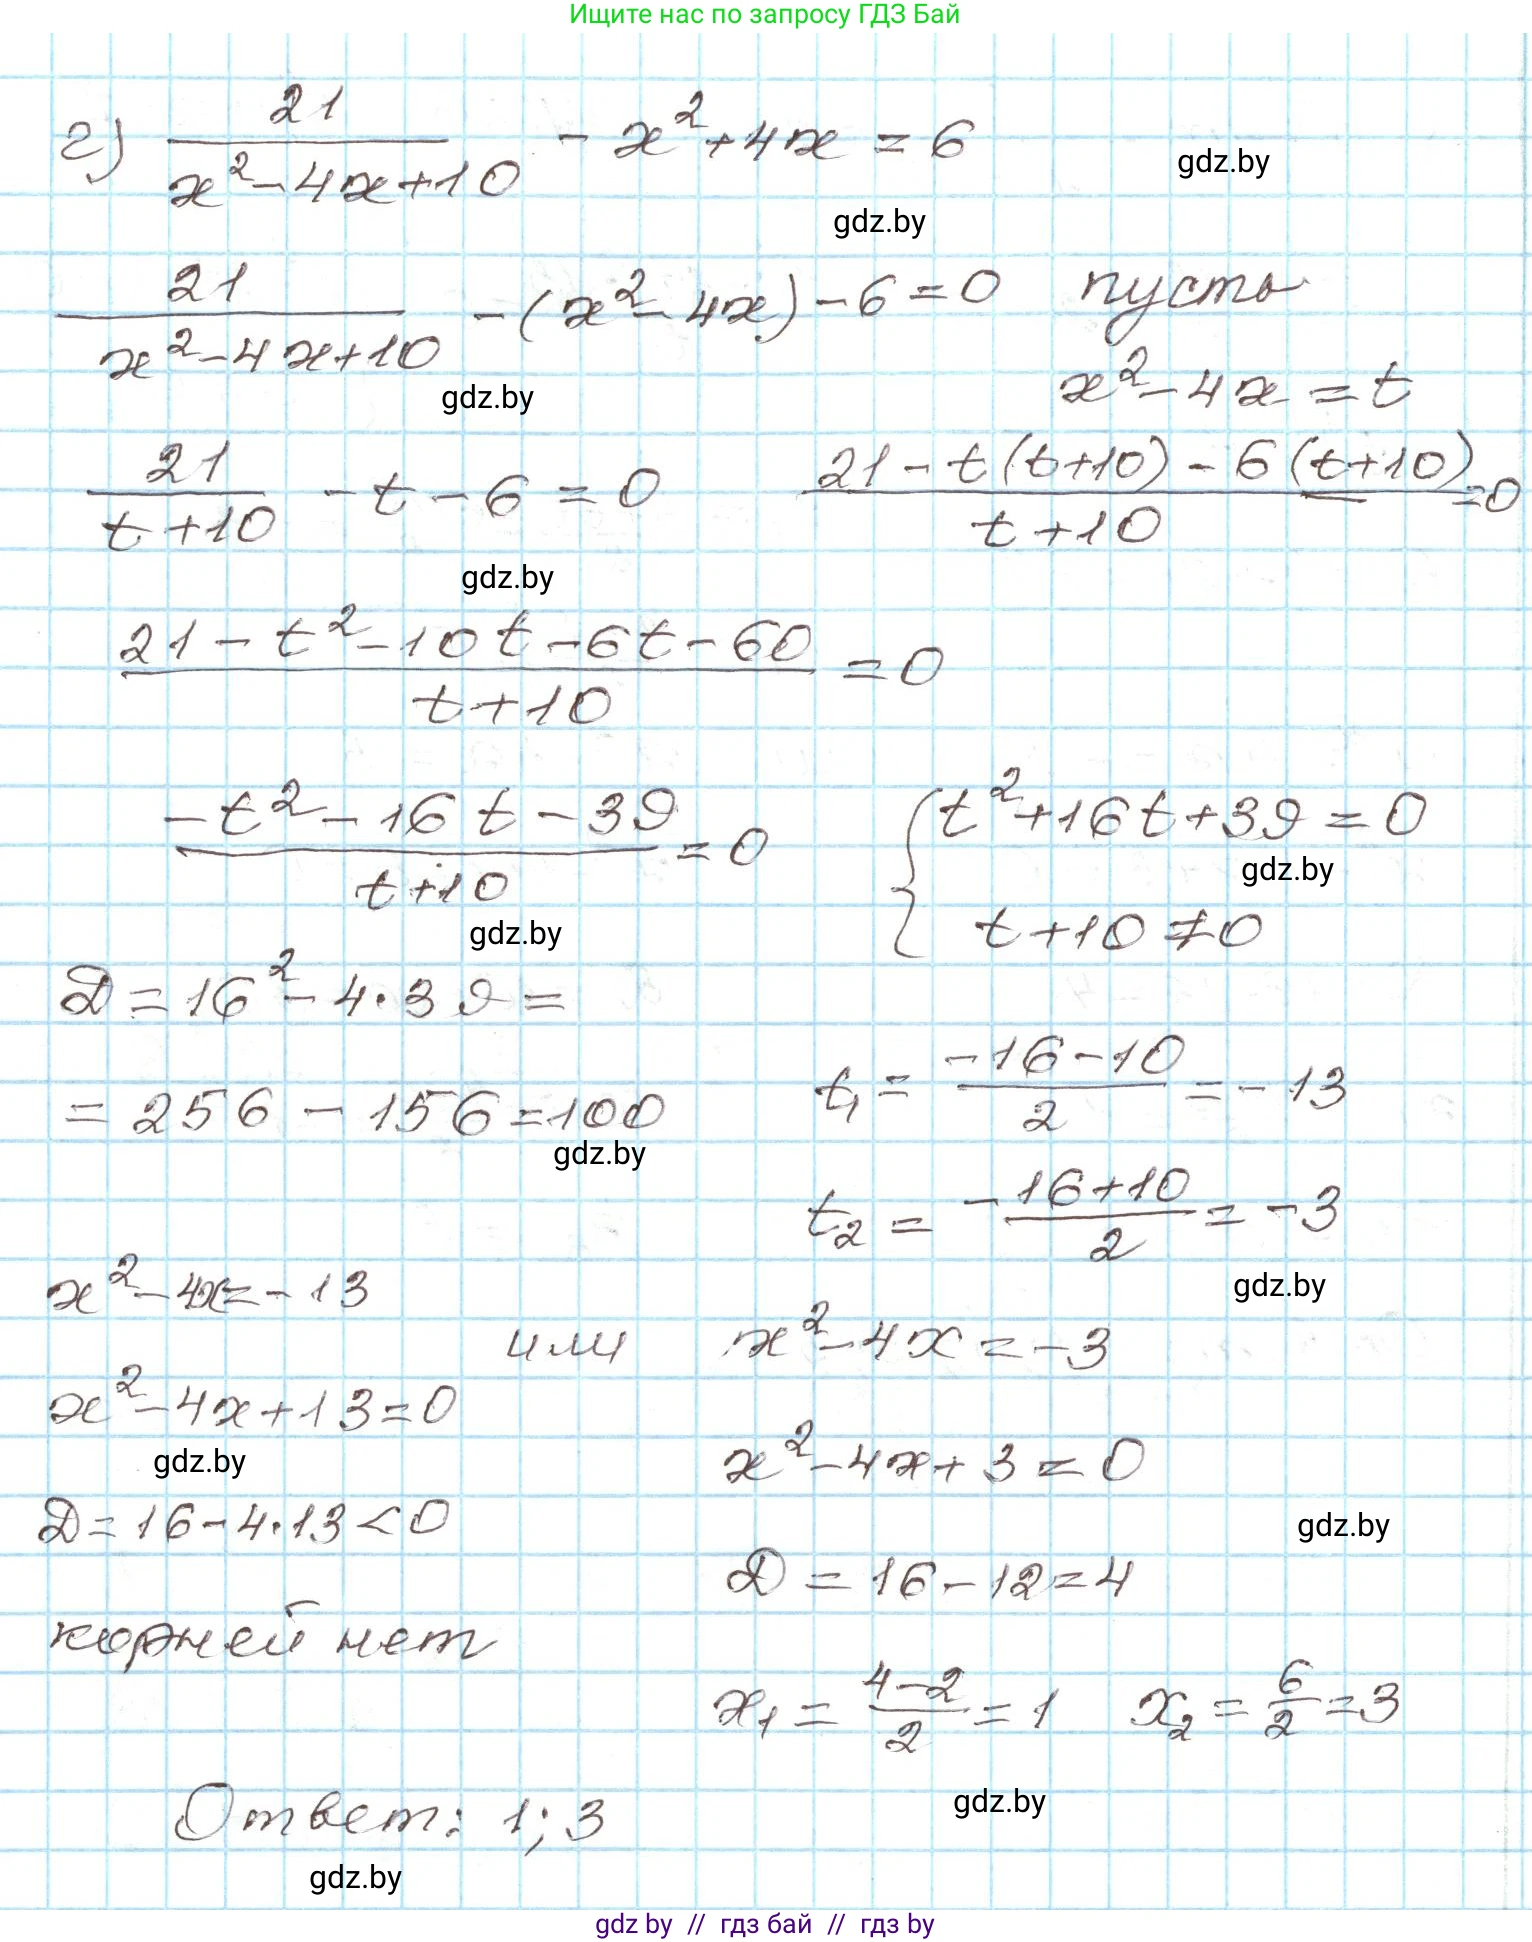 Ищите нас по запросу ГДЗ Бай
г) 21/(x²-4x+10) - x²+4x = 6
gdz.by
gdz.by
21/(x²-4x+10) - (x²-4x) - 6 = 0 пусть
x²-4x = t
gdz.by
21/(t+10) - t - 6 = 0 (21-t(t+10)-6(t+10))/(t+10) = 0
gdz.by
(21-t²-10t-6t-60)/(t+10) = 0
(-t²-16t-39)/(t+10) = 0 { t²+16t+39=0
gdz.by
t+10≠0
gdz.by
D=16²-4·39=
=256-156=100 t₁ = (-16-10)/2 = -13
gdz.by
t₂ = (-16+10)/2 = -3
gdz.by
x²-4x=-13
или x²-4x=-3
x²-4x+13=0
gdz.by x²-4x+3=0
D=16-4·13<0
gdz.by
D=16-12=4
корней нет
x₁ = (4-2)/2 = 1 x₂ = 6/2 = 3
gdz.by
Ответ: 1; 3
gdz.by
gdz by // гдз бай // гдз by